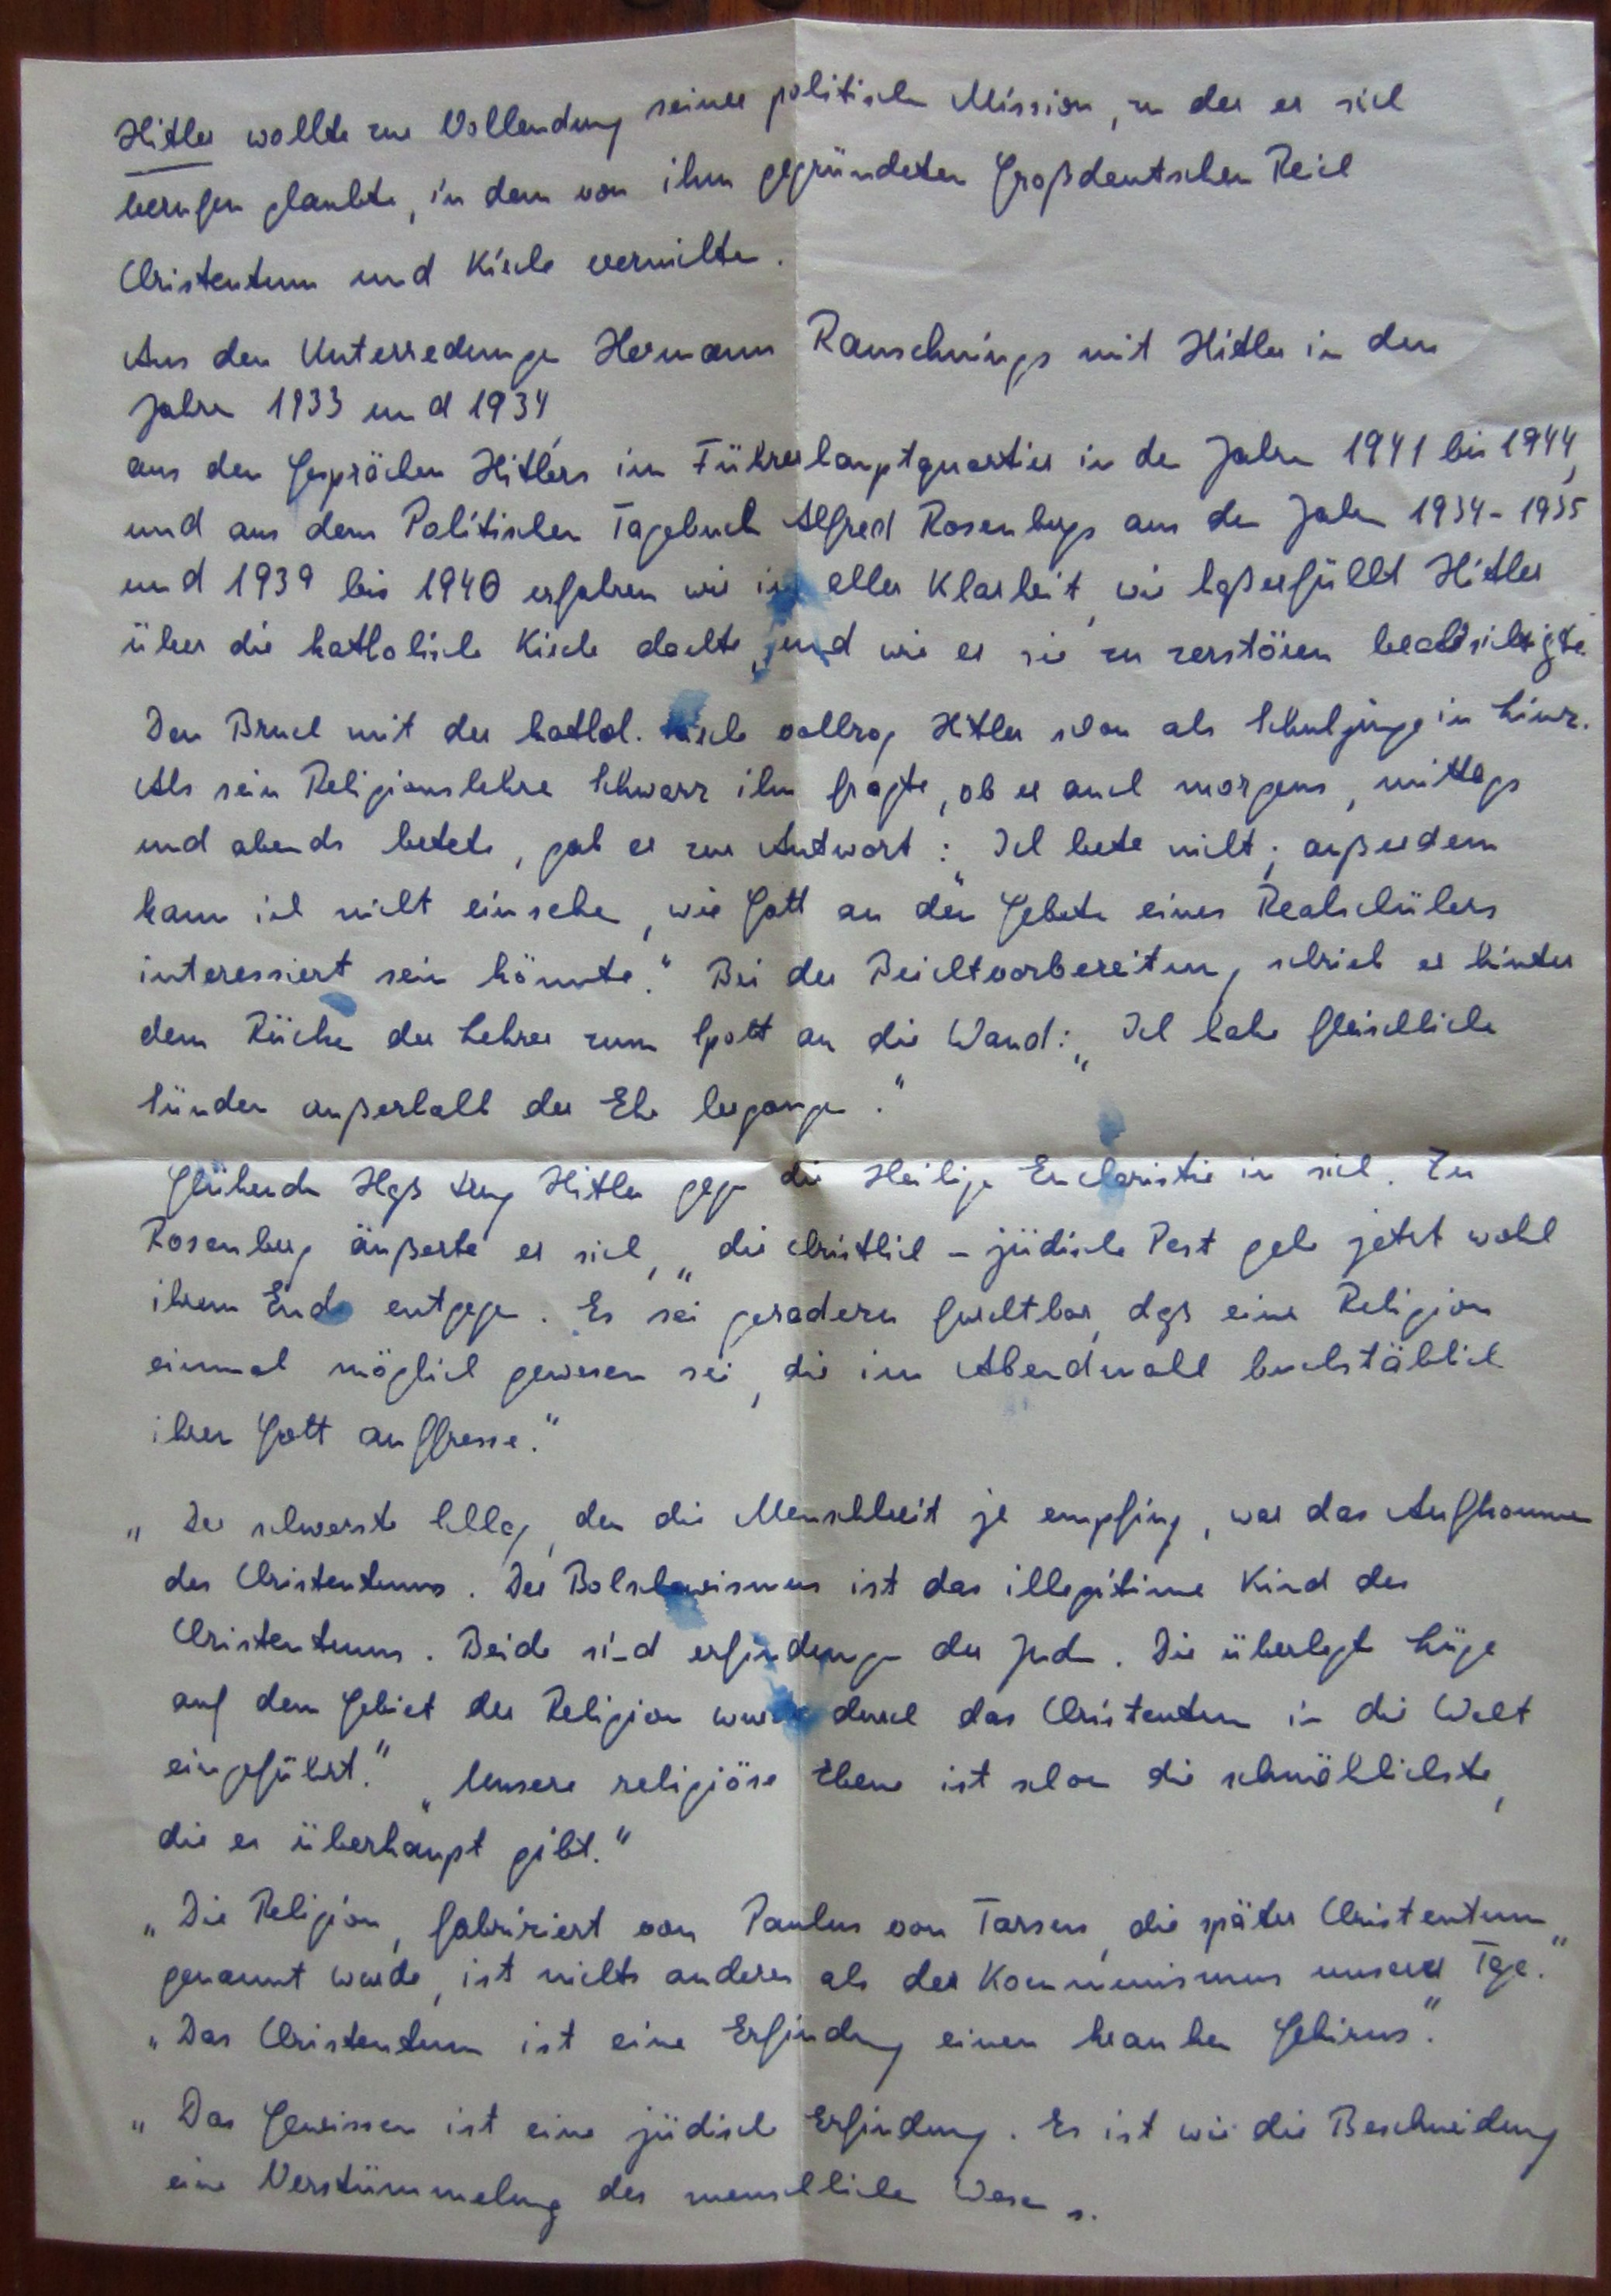 Hitler wollte zur Vollendung seiner politischen Mission, zu der er sich
berufen glaubte, in dem von ihm gegründeten Großdeutschen Reich
Christentum und Kirche vernichten.
Aus den Unterredungen Hermann Rauschnings mit Hitler in den
Jahren 1933 und 1934,
aus den Gesprächen Hitlers im Führerhauptquartier in den Jahren 1941 bis 1944,
und aus dem Politischen Tagebuch Alfred Rosenbergs aus den Jahren 1934-1935
und 1939 bis 1940 erfahren wir in aller Klarheit, wie haßerfüllt Hitler
über die katholische Kirche dachte, und wie er sie zu zerstören beabsichtigte.
Den Bruch mit der kathol. Kirche vollzog Hitler schon als Schuljunge in Linz.
Als sein Religionslehrer Schwarz ihn fragte, ob er auch morgens, mittags
und abends betete, gab er zur Antwort: „Ich bete nicht; außerdem
kann ich nicht einsehen, wie Gott an den Gebeten eines Realschülers
interessiert sein könnte." Bei der Beichtvorbereitung schrieb er hinter
dem Rücken des Lehrers zum Spott an die Wand: „Ich habe fleischliche
Sünden außerhalb der Ehe begangen."
Glühenden Haß trug Hitler gegen die Heilige Eucharistie in sich. Zu
Rosenberg äußerte er sich, „die christlich-jüdische Pest gehe jetzt wohl
ihrem Ende entgegen. Es sei geradezu furchtbar, daß eine Religion
einmal möglich gewesen sei, die im Abendmahl buchstäblich
ihren Gott auffresse."
„Der schwerste Schlag, den die Menschheit je empfing, war das Aufkommen
des Christentums. Der Bolschewismus ist das illegitime Kind des
Christentums. Beide sind erfindungen der Juden. Die überlegte Lüge
auf dem Gebiet der Religion wurde durch das Christentum in die Welt
eingeführt." „Unsere religiöse Ebene ist schon die schmählichste,
die es überhaupt gibt."
„Die Religion, fabriziert von Paulus von Tarsus, die später Christentum
genannt wurde, ist nichts anderes als der Kommunismus unserer Tage."
„Das Christentum ist eine Erfindung einen kranken Gehirns".
„Das Gewissen ist eine jüdische Erfindung. Es ist wie die Beschneidung
eine Verstümmelung des menschlichen Wesens.